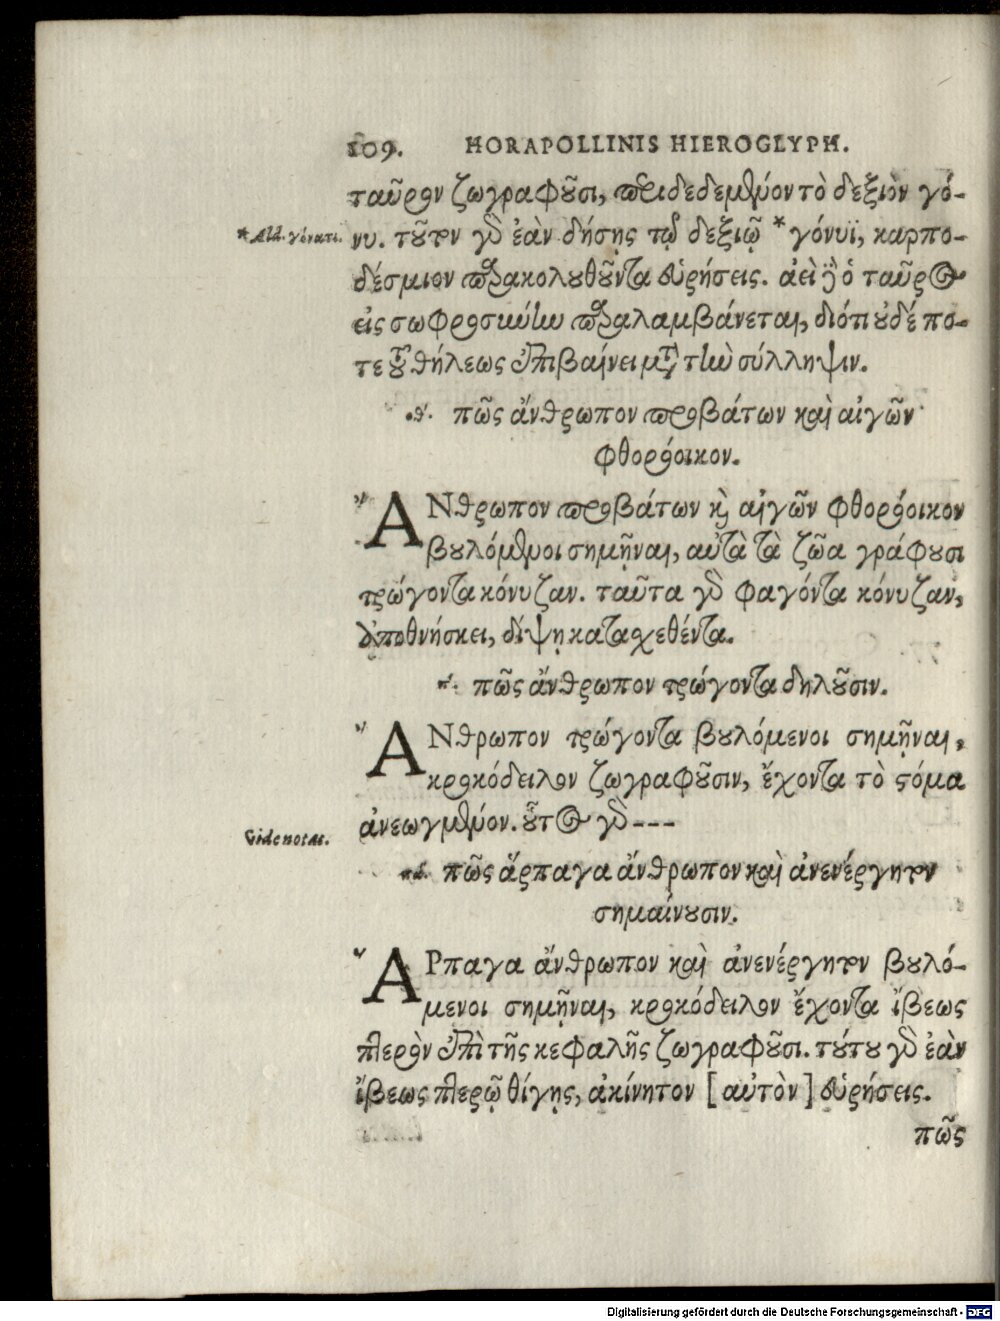 109. HORAPOLLINIS HIEROGLYPH.
ταῦρον ζωγραφοῦσι, περιδεδεμένον τὸ δεξιὸν γό-
*Ald. γόνατι. νυ. τοῦτον γὰρ ἐὰν δήσῃς τῷ δεξιῷ * γόνυϊ, καρπο-
δέσμιον παρακολουθοῦντα εὑρήσεις. ἀεὶ δὲ ὁ ταῦρος
εἰς σωφροσύνην παραλαμβάνεται, διότι οὐδέ πο-
τε τοῦ θήλεως ἐπιβαίνει μετὰ τὴν σύλληψιν.
οθ΄. πῶς ἄνθρωπον προβάτων καὶ αἰγῶν
φθορόοικον.
ἌΝθρωπον προβάτων καὶ αἰγῶν φθορόοικον
βουλόμενοι σημῆναι, αὐτὰ τὰ ζῶα γράφουσι
τρώγοντα κόνυζαν. ταῦτα γὰρ φαγόντα κόνυζαν,
ἀποθνήσκει, δίψῃ κατασχεθέντα.
π΄. πῶς ἄνθρωπον τρώγοντα δηλοῦσιν.
ἌΝθρωπον τρώγοντα βουλόμενοι σημῆναι,
κροκόδειλον ζωγραφοῦσιν, ἔχοντα τὸ στόμα
ἀνεωγμένον. οὗτος γὰρ ---
Vide notas.
πα΄. πῶς ἅρπαγα ἄνθρωπον καὶ ἀνενέργητον
σημαίνουσιν.
ἍΡπαγα ἄνθρωπον καὶ ἀνενέργητον βουλό-
μενοι σημῆναι, κροκόδειλον ἔχοντα ἴβεως
πτερὸν ἐπὶ τῆς κεφαλῆς ζωγραφοῦσι. τούτου γὰρ ἐὰν
ἴβεως πτερῷ θίγῃς, ἀκίνητον [αὐτὸν] εὑρήσεις.
πῶς
Digitalisierung gefördert durch die Deutsche Forschungsgemeinschaft - DFG